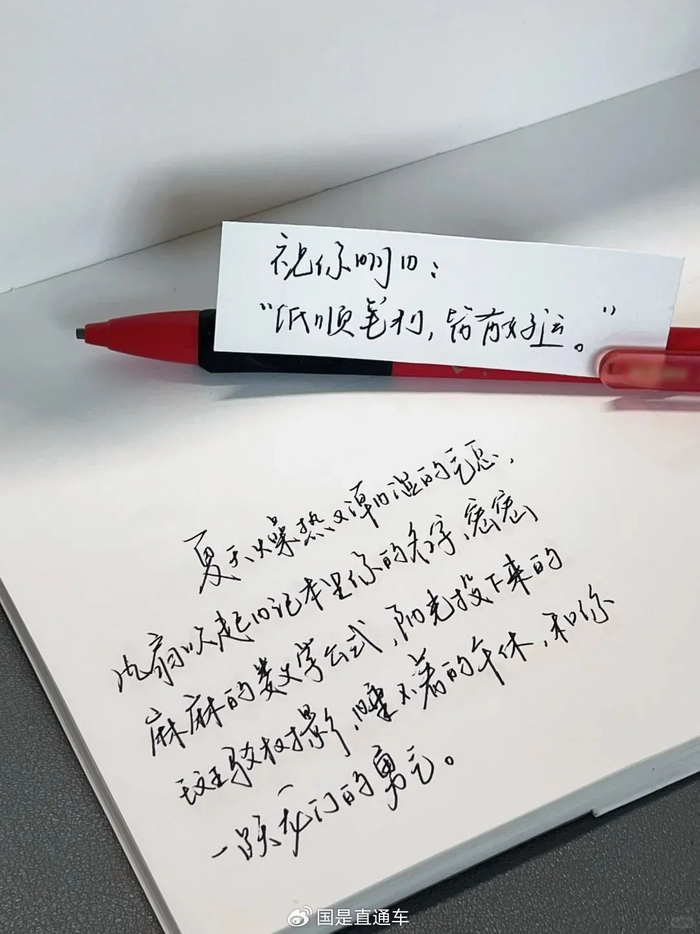 祝你明日：
“纸顺笔利，皆有好运。”
夏天燥热又潮湿的气息，
风扇吹起旧记本里你的名字，密密
麻麻的数学公式，阳光投下来的
斑驳树影，睡不着的午休，和你
一跃龙门的勇气。
国是直通车